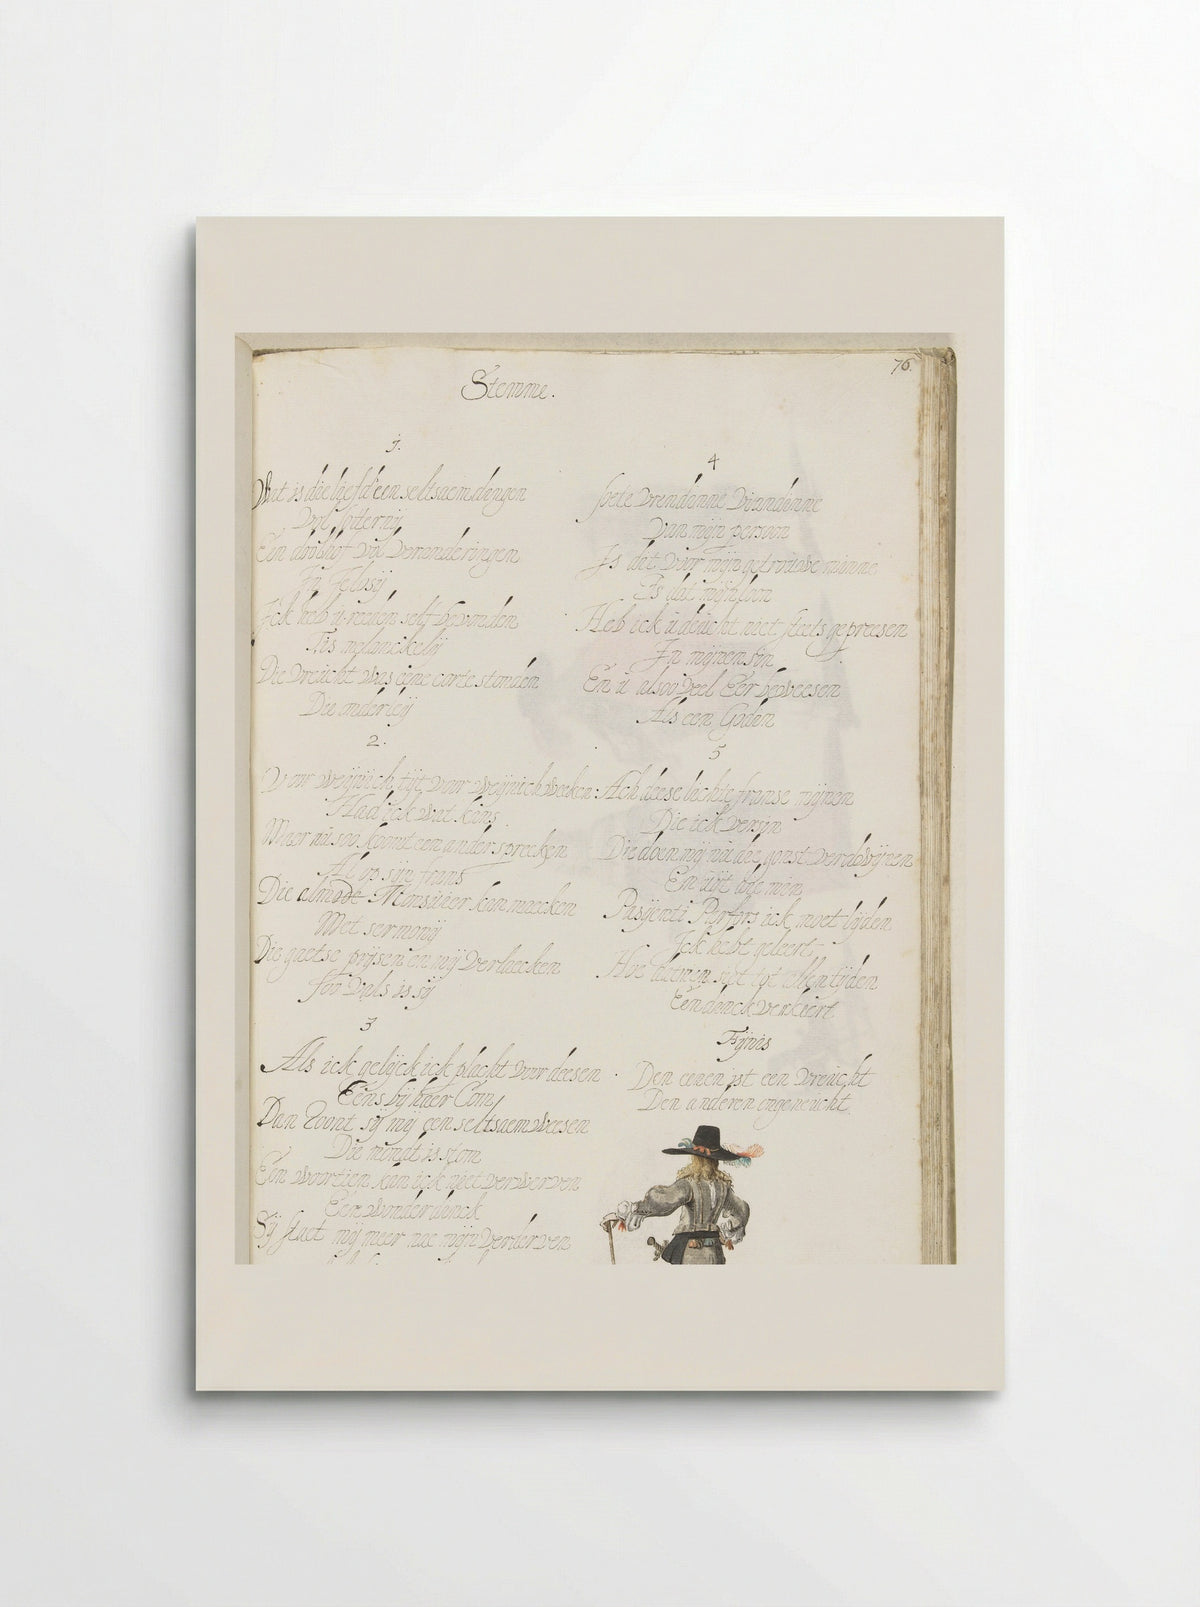 76.
Stemme.
1.
Wat is die liefd een seltsaem dingen
Vol sotternij
Een doolhof Vol Veranderingen
In Jelosij
Ick heb u reeden self bevonden
Tis
Die Vreucht was eene corte stonden
Die
2.
Voor weijnich tijt voor weijnich weeken
Had ick wat kans
Maer nu soo koomt een ander spreeken
Al op sijn frans
Die almode Monsuieer kan maecken
Met sermonij
Die gaetse prijsen en mij Verlaecken
soo Vals is sij
3
Als ick gelijck ick placht voor deesen
Eens bij haer Com
Dan Toont sij mij een seltsaem weesen
Die mondt is stom
Een woortien kan ick niet verwerven
Een wonder dinck
Sij staet mij meer nae mijn Verderven
4
soete Vrendinne Viandinne
Van mijn persoon
Is dat voor mijn getrouwe minne
Is dat mijn loon
Heb ick u deucht niet steets gepreesen
In mijnen sin
En u alsoo Veel Eer beweesen
Als een Godin
5
Ach deese lichte franse mijnen
Die ick versin
Die doen mij nu die gonst verdwijnen
En uijt die min
Pasijenti Parfors ick moet lijden
Ick hebt geleert
Hoe datmen siet tot allen tijden
Een dinck verkeert
Fijnis
Den eenen ist een Vreucht
Den anderen ongeneucht